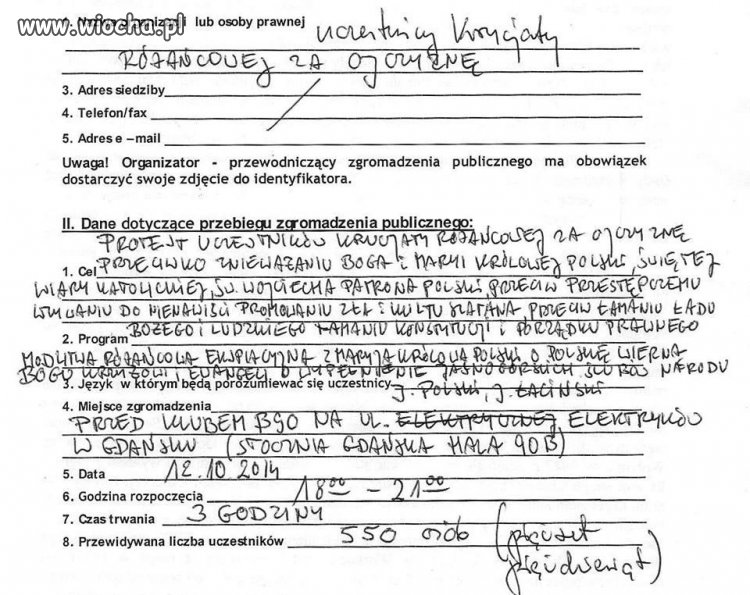 www.wiocha.pl
lub osoby prawnej uczestnicy Krucjaty
RÓŻAŃCOWEJ ZA OJCZYZNĘ
3. Adres siedziby
4. Telefon/fax
5. Adres e –mail
Uwaga! Organizator - przewodniczący zgromadzenia publicznego ma obowiązek
dostarczyć swoje zdjęcie do identyfikatora.
II. Dane dotyczące przebiegu zgromadzenia publicznego:
PROTEST UCZESTNIKÓW KRUCJATY RÓŻAŃCOWEJ ZA OJCZYZNĘ
1. Cel PRZECIWKO ZNIEWAŻANIU BOGA i MARYI KRÓLOWEJ POLSKI, ŚWIĘTEJ
WIARY KATOLICKIEJ, ŚW. WOJCIECHA PATRONA POLSKI, PRZECIW PRZESTĘPCZEMU
DO NIENAWIŚCI PROMOWANIU ZŁA i KULTU SZATANA, PRZECIW ŁAMANIU ŁADU
BOŻEGO I LUDZKIEGO ŁAMANIU KONSTYTUCJI i PORZĄDKU PRAWNEGO
2. Program
MODLITWA RÓŻAŃCOWA EKSPIACYJNA Z MARYJĄ KRÓLOWĄ POLSKI O POLSKĘ WIERNĄ
BOGU KRZYŻOWI I EWANGELII O WYPEŁNIENIE JASNOGÓRSKICH ŚLUBÓW NARODU
3. Język w którym będą porozumiewać się uczestnicy J. POLSKI, J. ŁACIŃSKI
4. Miejsce zgromadzenia
PRZED KLUBEM B90 NA UL. ELEKTRYCZNEJ ELEKTRYKÓW
W GDAŃSKU (STOCZNIA GDAŃSKA HALA 90B)
5. Data 12.10.2014
6. Godzina rozpoczęcia 18⁰⁰ – 21⁰⁰
7. Czas trwania 3 GODZINY
8. Przewidywana liczba uczestników 550 osób (pięćset
pięćdziesiąt)